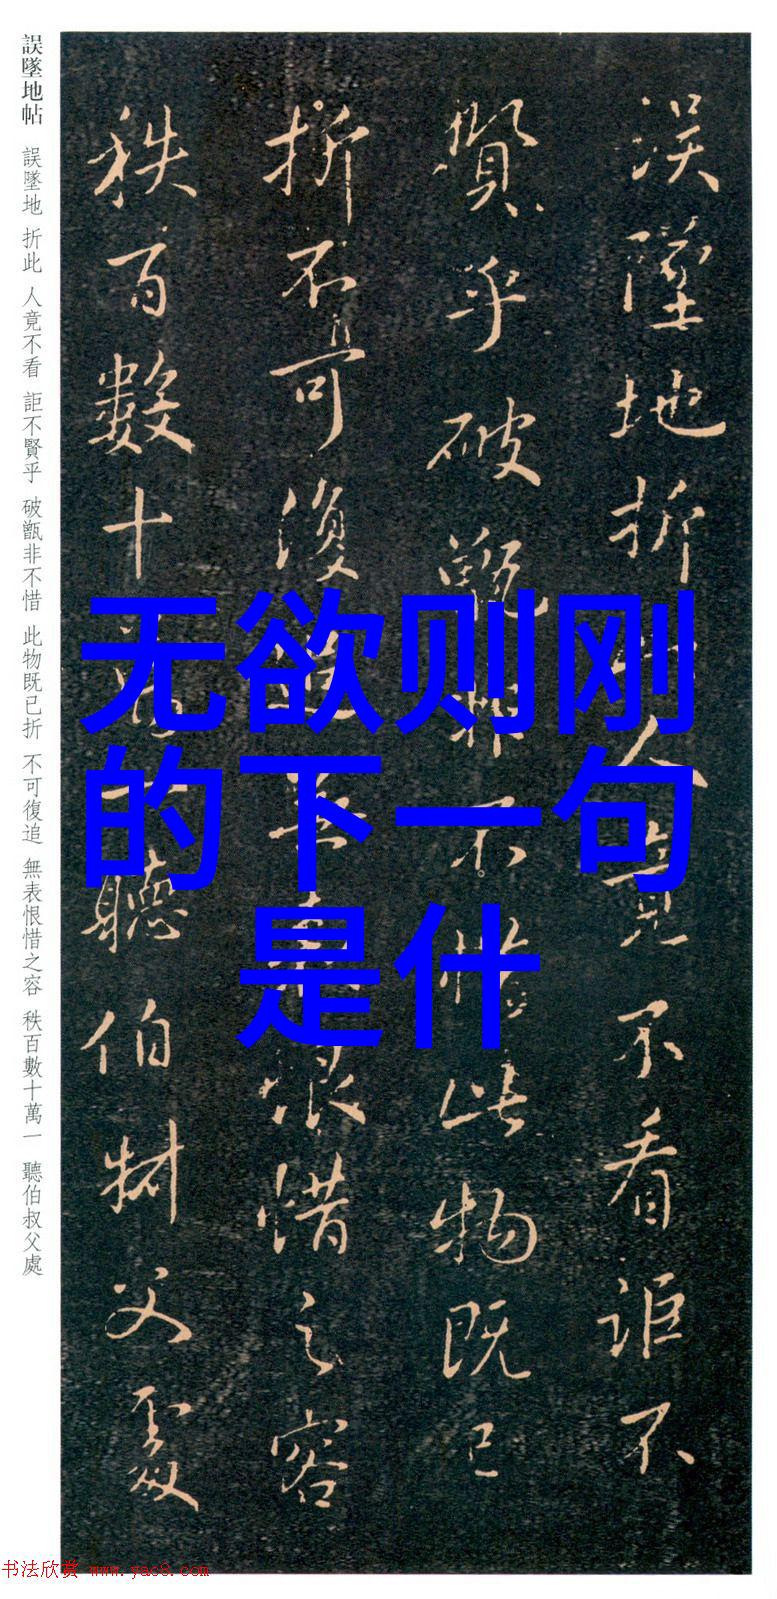 誤墜地帖 誤墜地 折此 人竟不看 詎不賢乎 破甑非不惜 此物既已折 不可復追 無表恨惜之容 秩百數十萬一 聽伯叔父處
误墜地折此人竟不看詎不
賢乎破甑非不惜此物既已
折不可復追無表恨惜之容
秩百數十萬一聽伯叔父處
无欲则刚
的下一句
是什
书法欣赏 www.yac8.com